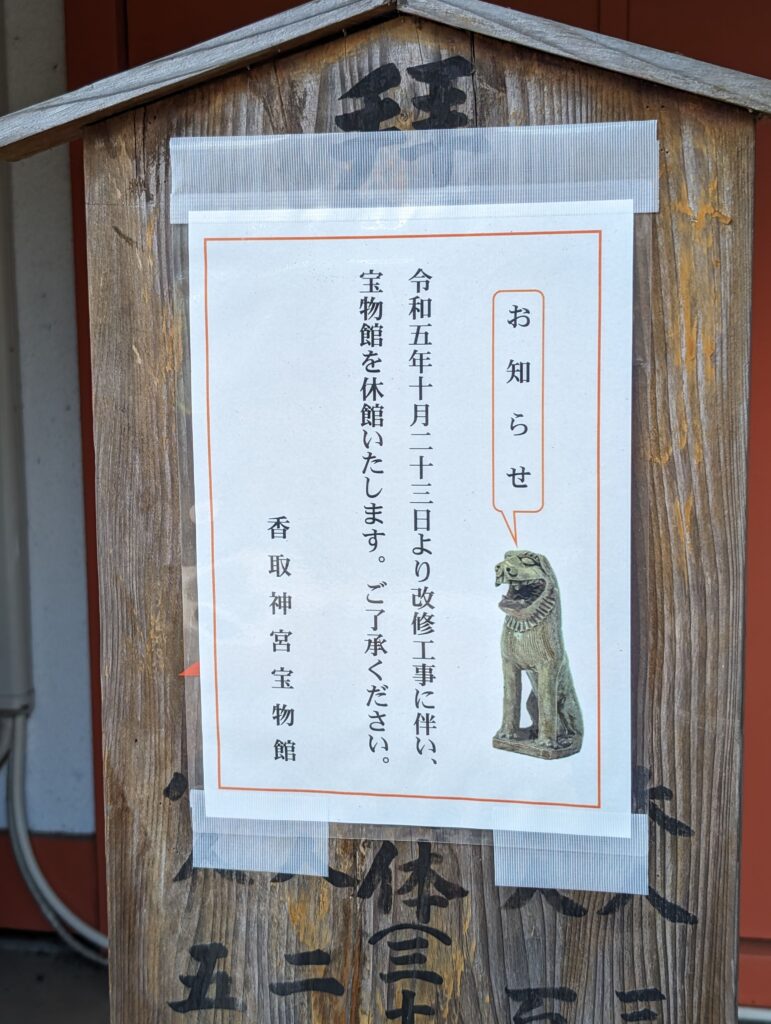 拝
お知らせ
令和五年十月二十三日より改修工事に伴い、
宝物館を休館いたします。ご了承ください。
香取神宮宝物館
体(三十
三
百
二
五